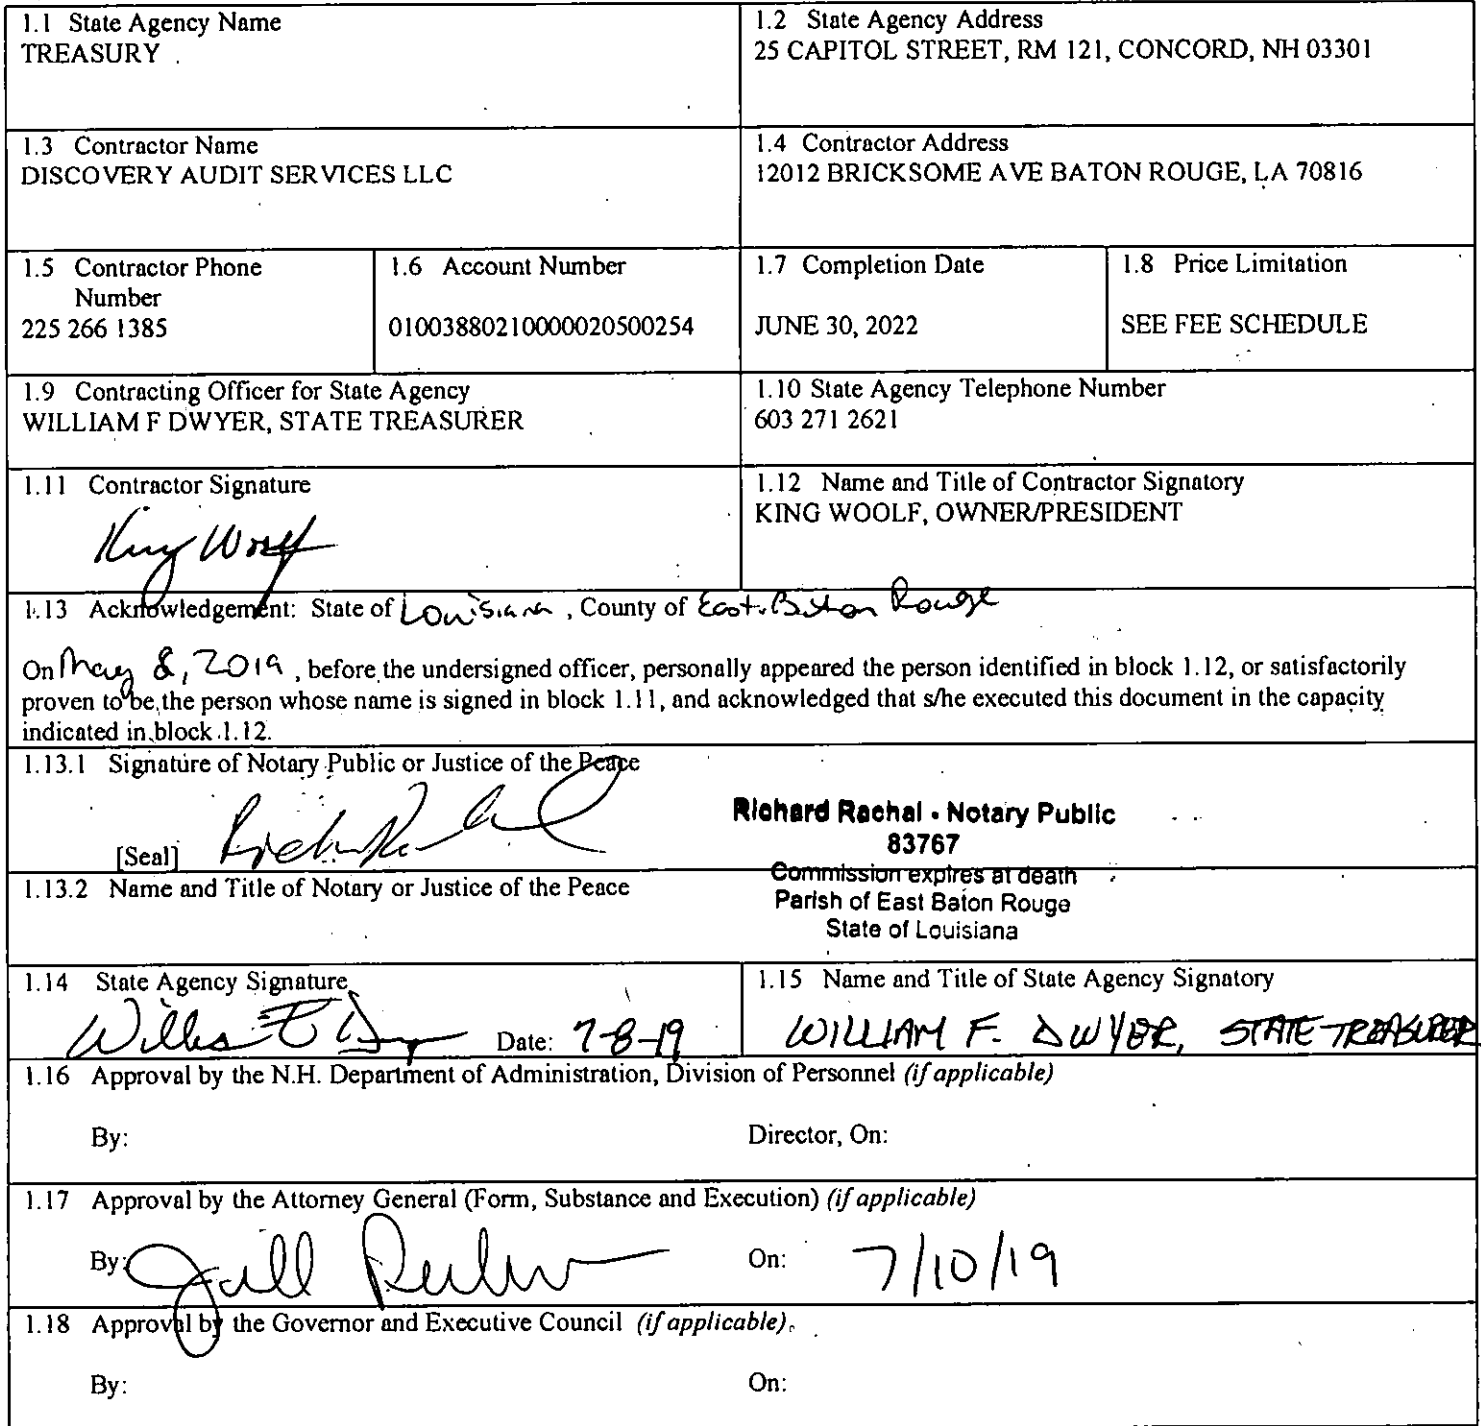 1.1 State Agency Name
TREASURY
1.2 State Agency Address
25 CAPITOL STREET, RM 121, CONCORD, NH 03301
1.3 Contractor Name
DISCOVERY AUDIT SERVICES LLC
1.4 Contractor Address
12012 BRICKSOME AVE BATON ROUGE, LA 70816
1.5 Contractor Phone
Number
225 266 1385
1.6 Account Number
01003880210000020500254
1.7 Completion Date
JUNE 30, 2022
1.8 Price Limitation
SEE FEE SCHEDULE
1.9 Contracting Officer for State Agency
WILLIAM F DWYER, STATE TREASURER
1.10 State Agency Telephone Number
603 271 2621
1.11 Contractor Signature
King Woolf
1.12 Name and Title of Contractor Signatory
KING WOOLF, OWNER/PRESIDENT
1.13 Acknowledgement: State of Louisiana, County of East Baton Rouge
On May 8, 2019, before the undersigned officer, personally appeared the person identified in block 1.12, or satisfactorily
proven to be the person whose name is signed in block 1.11, and acknowledged that s/he executed this document in the capacity
indicated in block 1.12.
1.13.1 Signature of Notary Public or Justice of the Peace
[Seal]
Richard Rachal - Notary Public
83767
Commission expires at death
Parish of East Baton Rouge
State of Louisiana
1.13.2 Name and Title of Notary or Justice of the Peace
1.14 State Agency Signature
William F Dwyer Date: 7-8-19
1.15 Name and Title of State Agency Signatory
WILLIAM F. DWYER, STATE TREASURER
1.16 Approval by the N.H. Department of Administration, Division of Personnel (if applicable)
By: Director, On:
1.17 Approval by the Attorney General (Form, Substance and Execution) (if applicable)
By: Jill On: 7/10/19
1.18 Approval by the Governor and Executive Council (if applicable)
By: On: